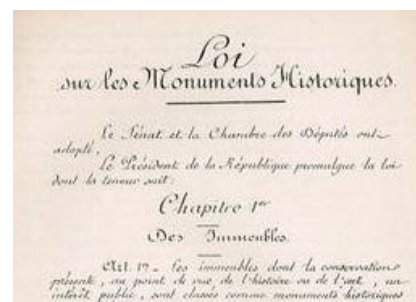 Loi
sur les Monuments Historiques.
Le Sénat et la Chambre des Députés ont
adopté,
Le Président de la République promulgue la loi
dont la teneur suit :
Chapitre 1er
Des Immeubles.
Art. 1er Les immeubles dont la conservation
présente, au point de vue de l'histoire ou de l'art, un
intérêt public, sont classés comme monuments historiques